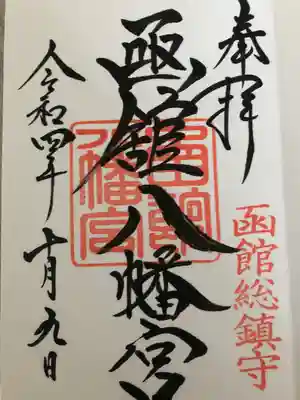 奉拝
函館総鎮守
函館八幡宮
函館八幡宮
令和四年十月九日